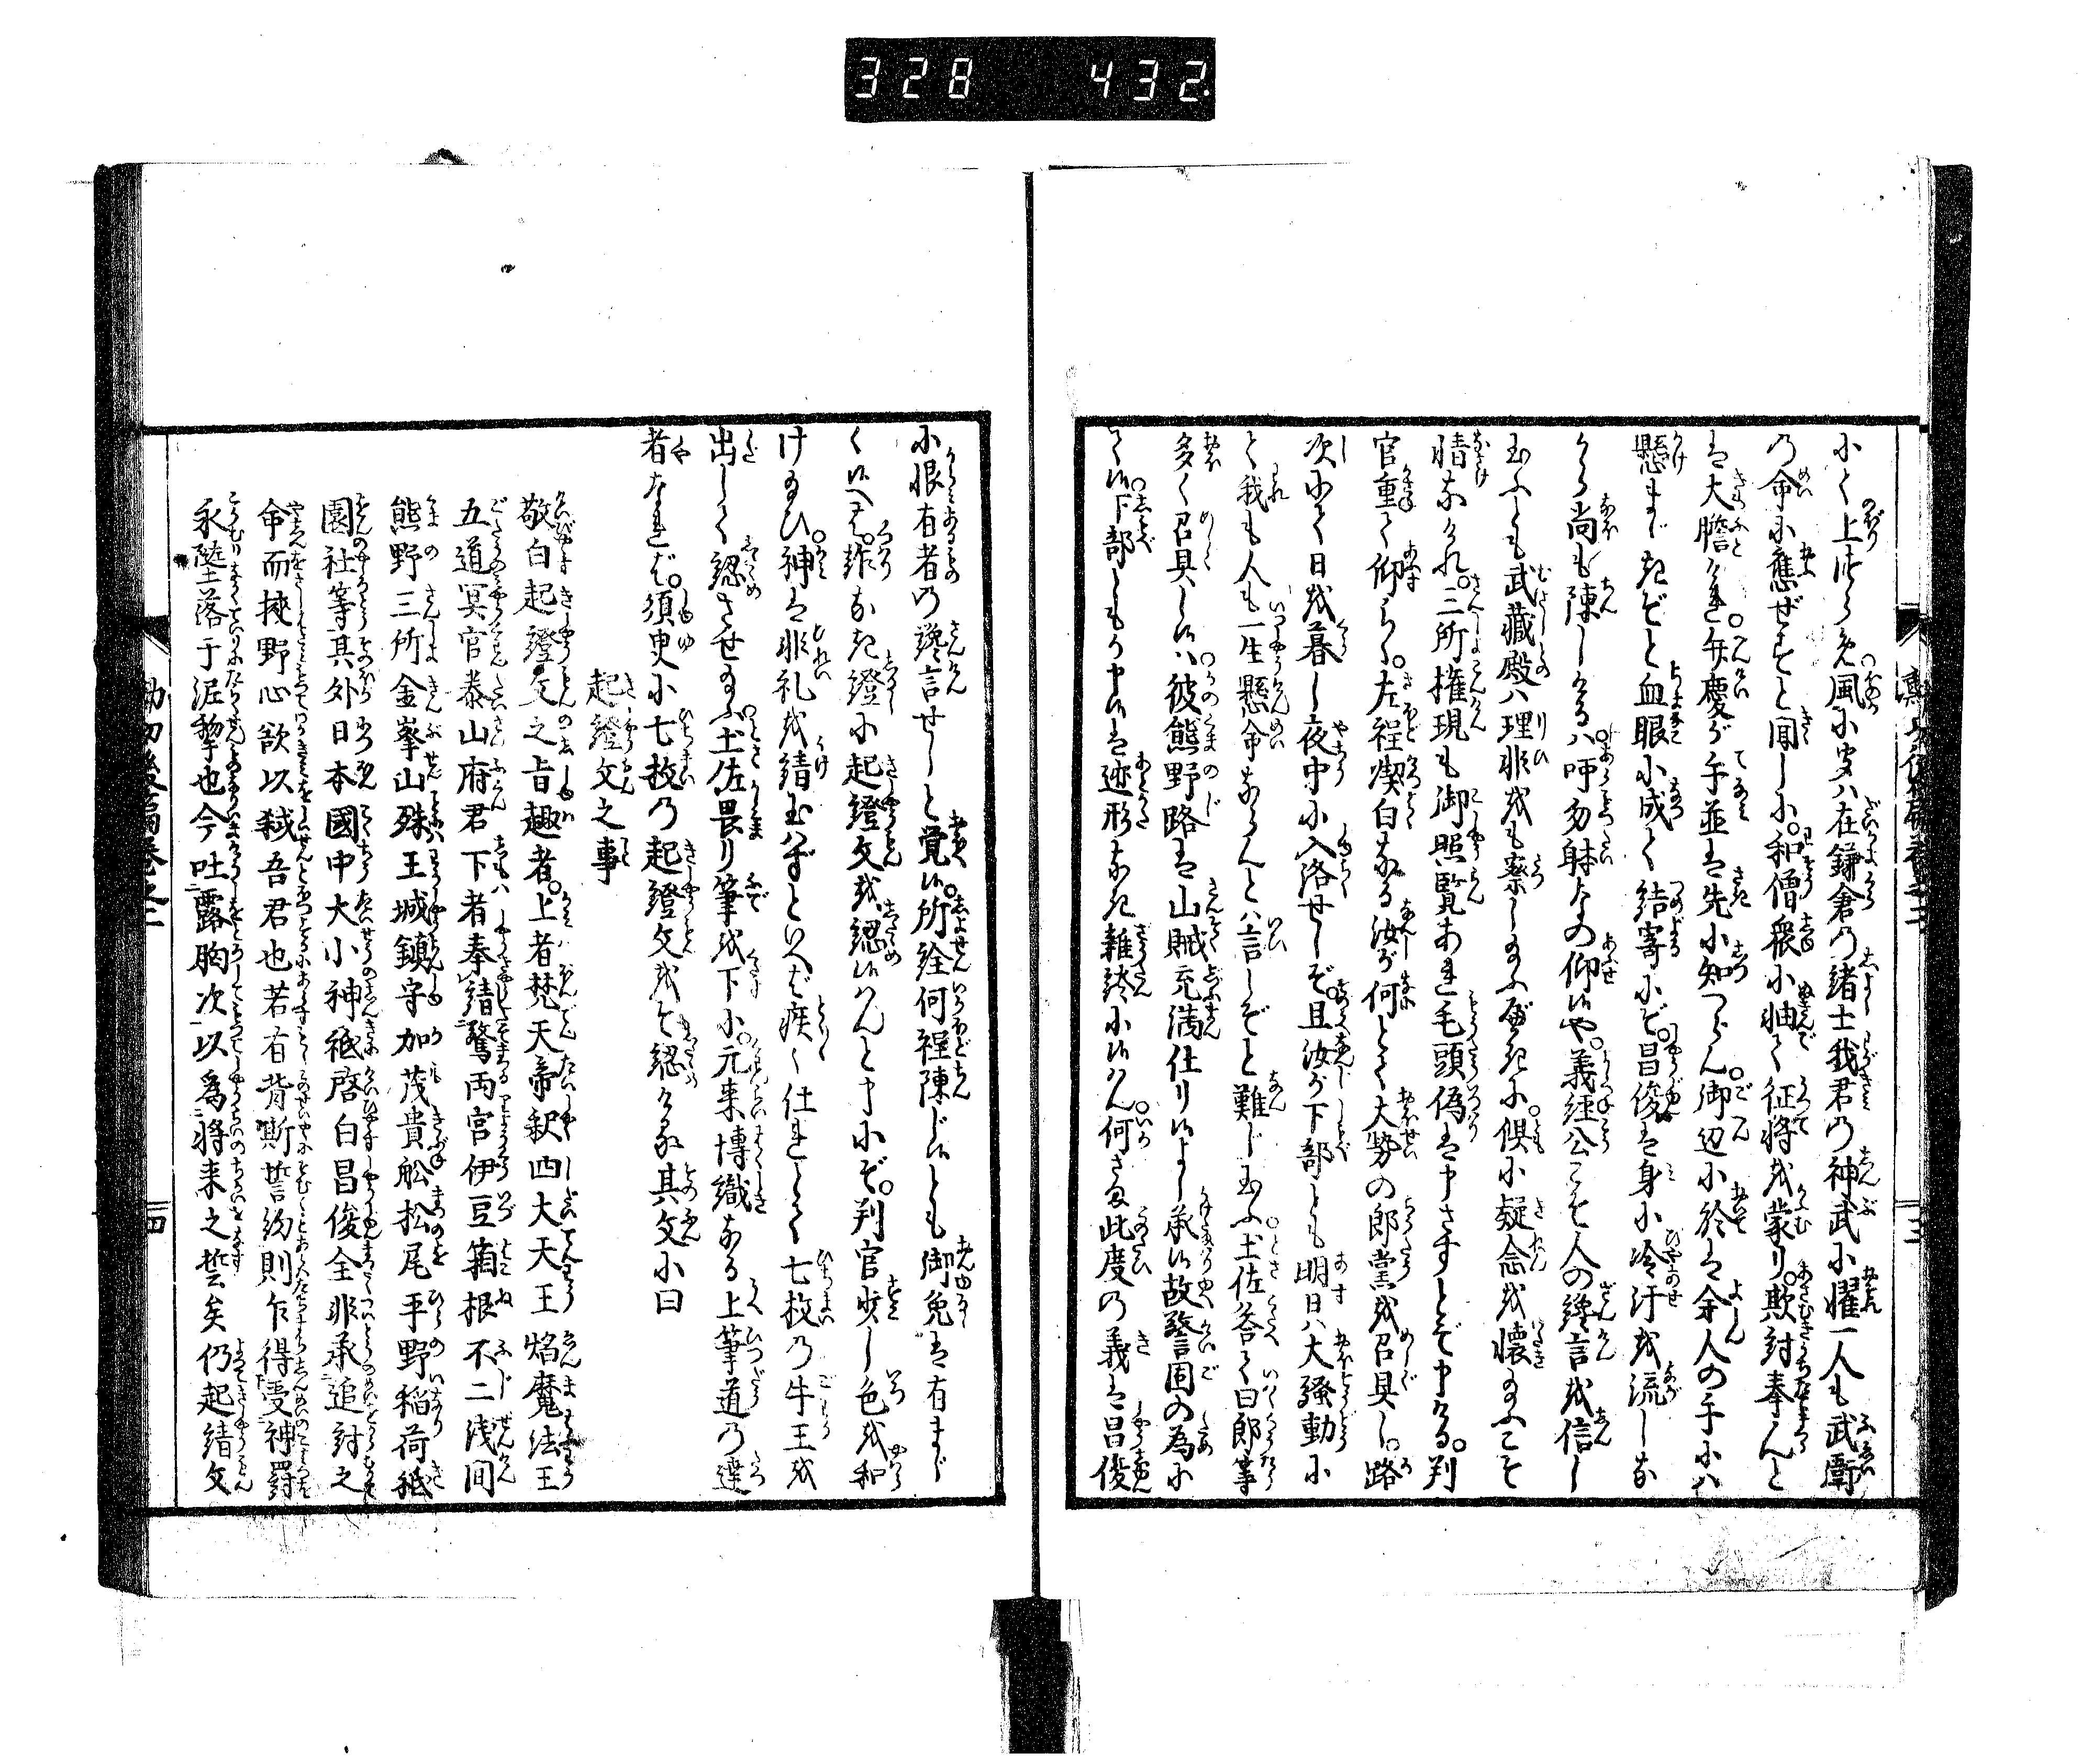 328 432
にて上洛つらく風に空は在鎌倉の諸士我君の神武に懼一人も武衛
の命に應ぜずと聞しに和僧衆に抽て征将を蒙り欺討奉んと
は大膽なれ弁慶が手並は先に知つらん御辺に於は余人の手には
懸まじきぞと血眼に成て結寄にぞ昌俊は身に冷汗を流しな
がら尚も陳しけるは呼勿躰なの仰候や義經公こそ人の讒言を信じ
玉ふとも武藏殿は理非をも察し玉ふべきに倶に疑念を懐玉ふこそ
情なけれ三所權現も御照覧あれ毛頭偽は申さずとぞ申ける判
官重て仰らく左程潔白なる汝が何とて大勢の郎黨を召具し路
次にて日を暮し夜中に入洛せしぞ且汝が下部とも明日は大騒動に
て我も人も一生懸命ならんとは言しぞと難じ玉ふ土佐答て曰郎等
多く召具し候は彼熊野路は山賊充満仕り候よし承候故警固の為に
て候下部しもが申候は迹形なき雜談に候はん何さま此度の義は昌俊
に恨有者の讒言せしと覚候所詮何程陳じ候とも御免は有まじ
く候へば詐なき證に起證文を認候はんと申にぞ判官少し色を和
げ玉ひ神は非礼を請玉はずといへば疾〱仕れとて七枚の牛王を
出して認させ玉ふ土佐畏り筆を下に元来博識なる上筆道の達
者なれば須臾に七枚の起證文をぞ認ける其文に曰
起證文之事
敬白起證文之旨趣者上者梵天帝釈四大天王焰魔法王
五道冥官泰山府君下者奉請驚両宮伊豆箱根不二浅間
熊野三所金峯山殊王城鎮守加茂貴舩松尾平野稲荷祇
園社等其外日本國中大小神祇啓白昌俊全非承追討之
命而挾野心欲以弑吾君也若有背斯誓約則乍得受神罸
永陸落于泥犂也今吐露胸次以爲將来之誓矣仍起請文
三
四